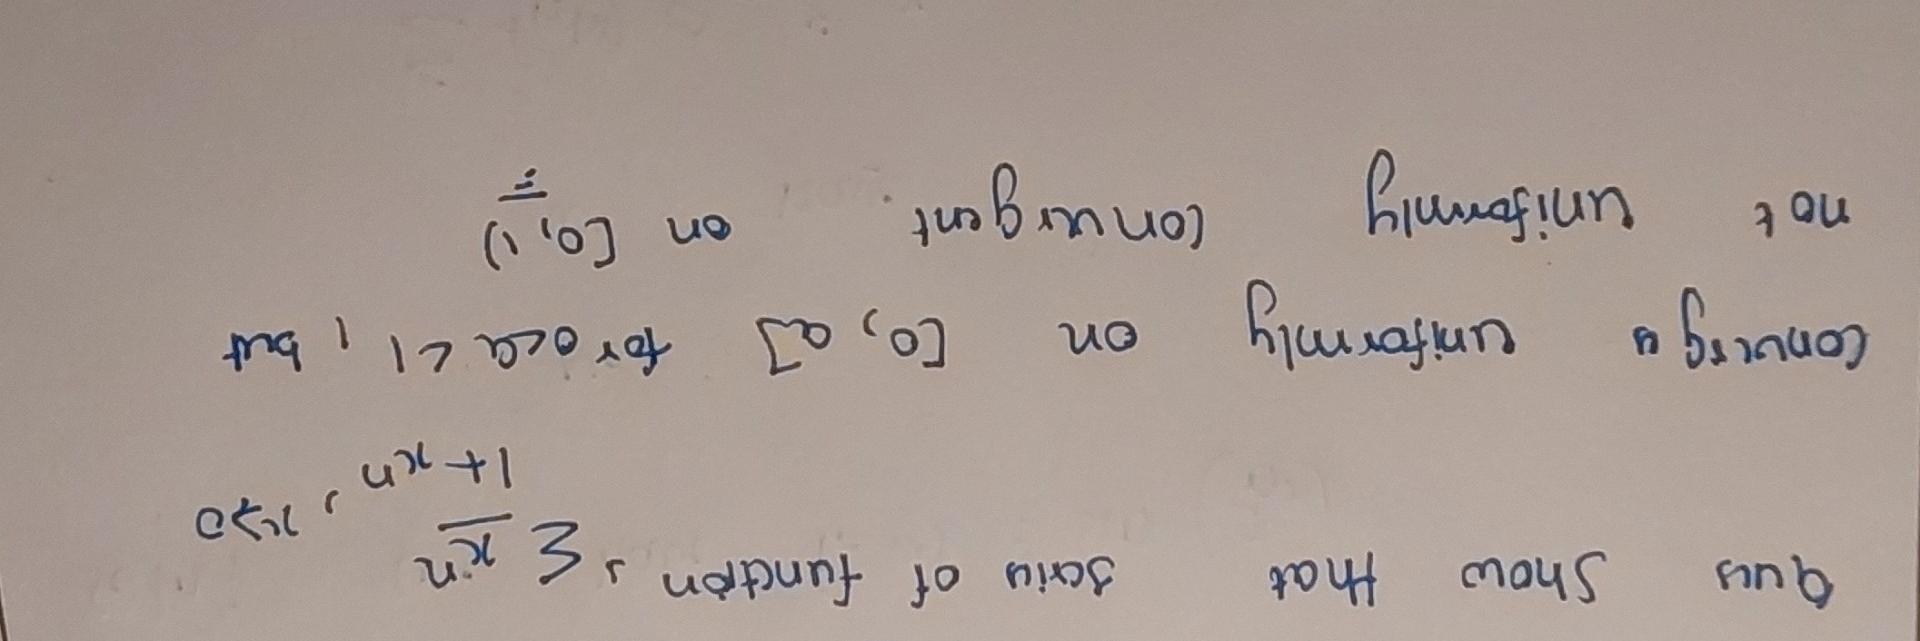 Ques Show that series of function, Σ xⁿ / 1 + xⁿ, x ≥ 0
converges uniformly on [0, a] for 0 < a < 1, but
not uniformly convergent on [0, 1)